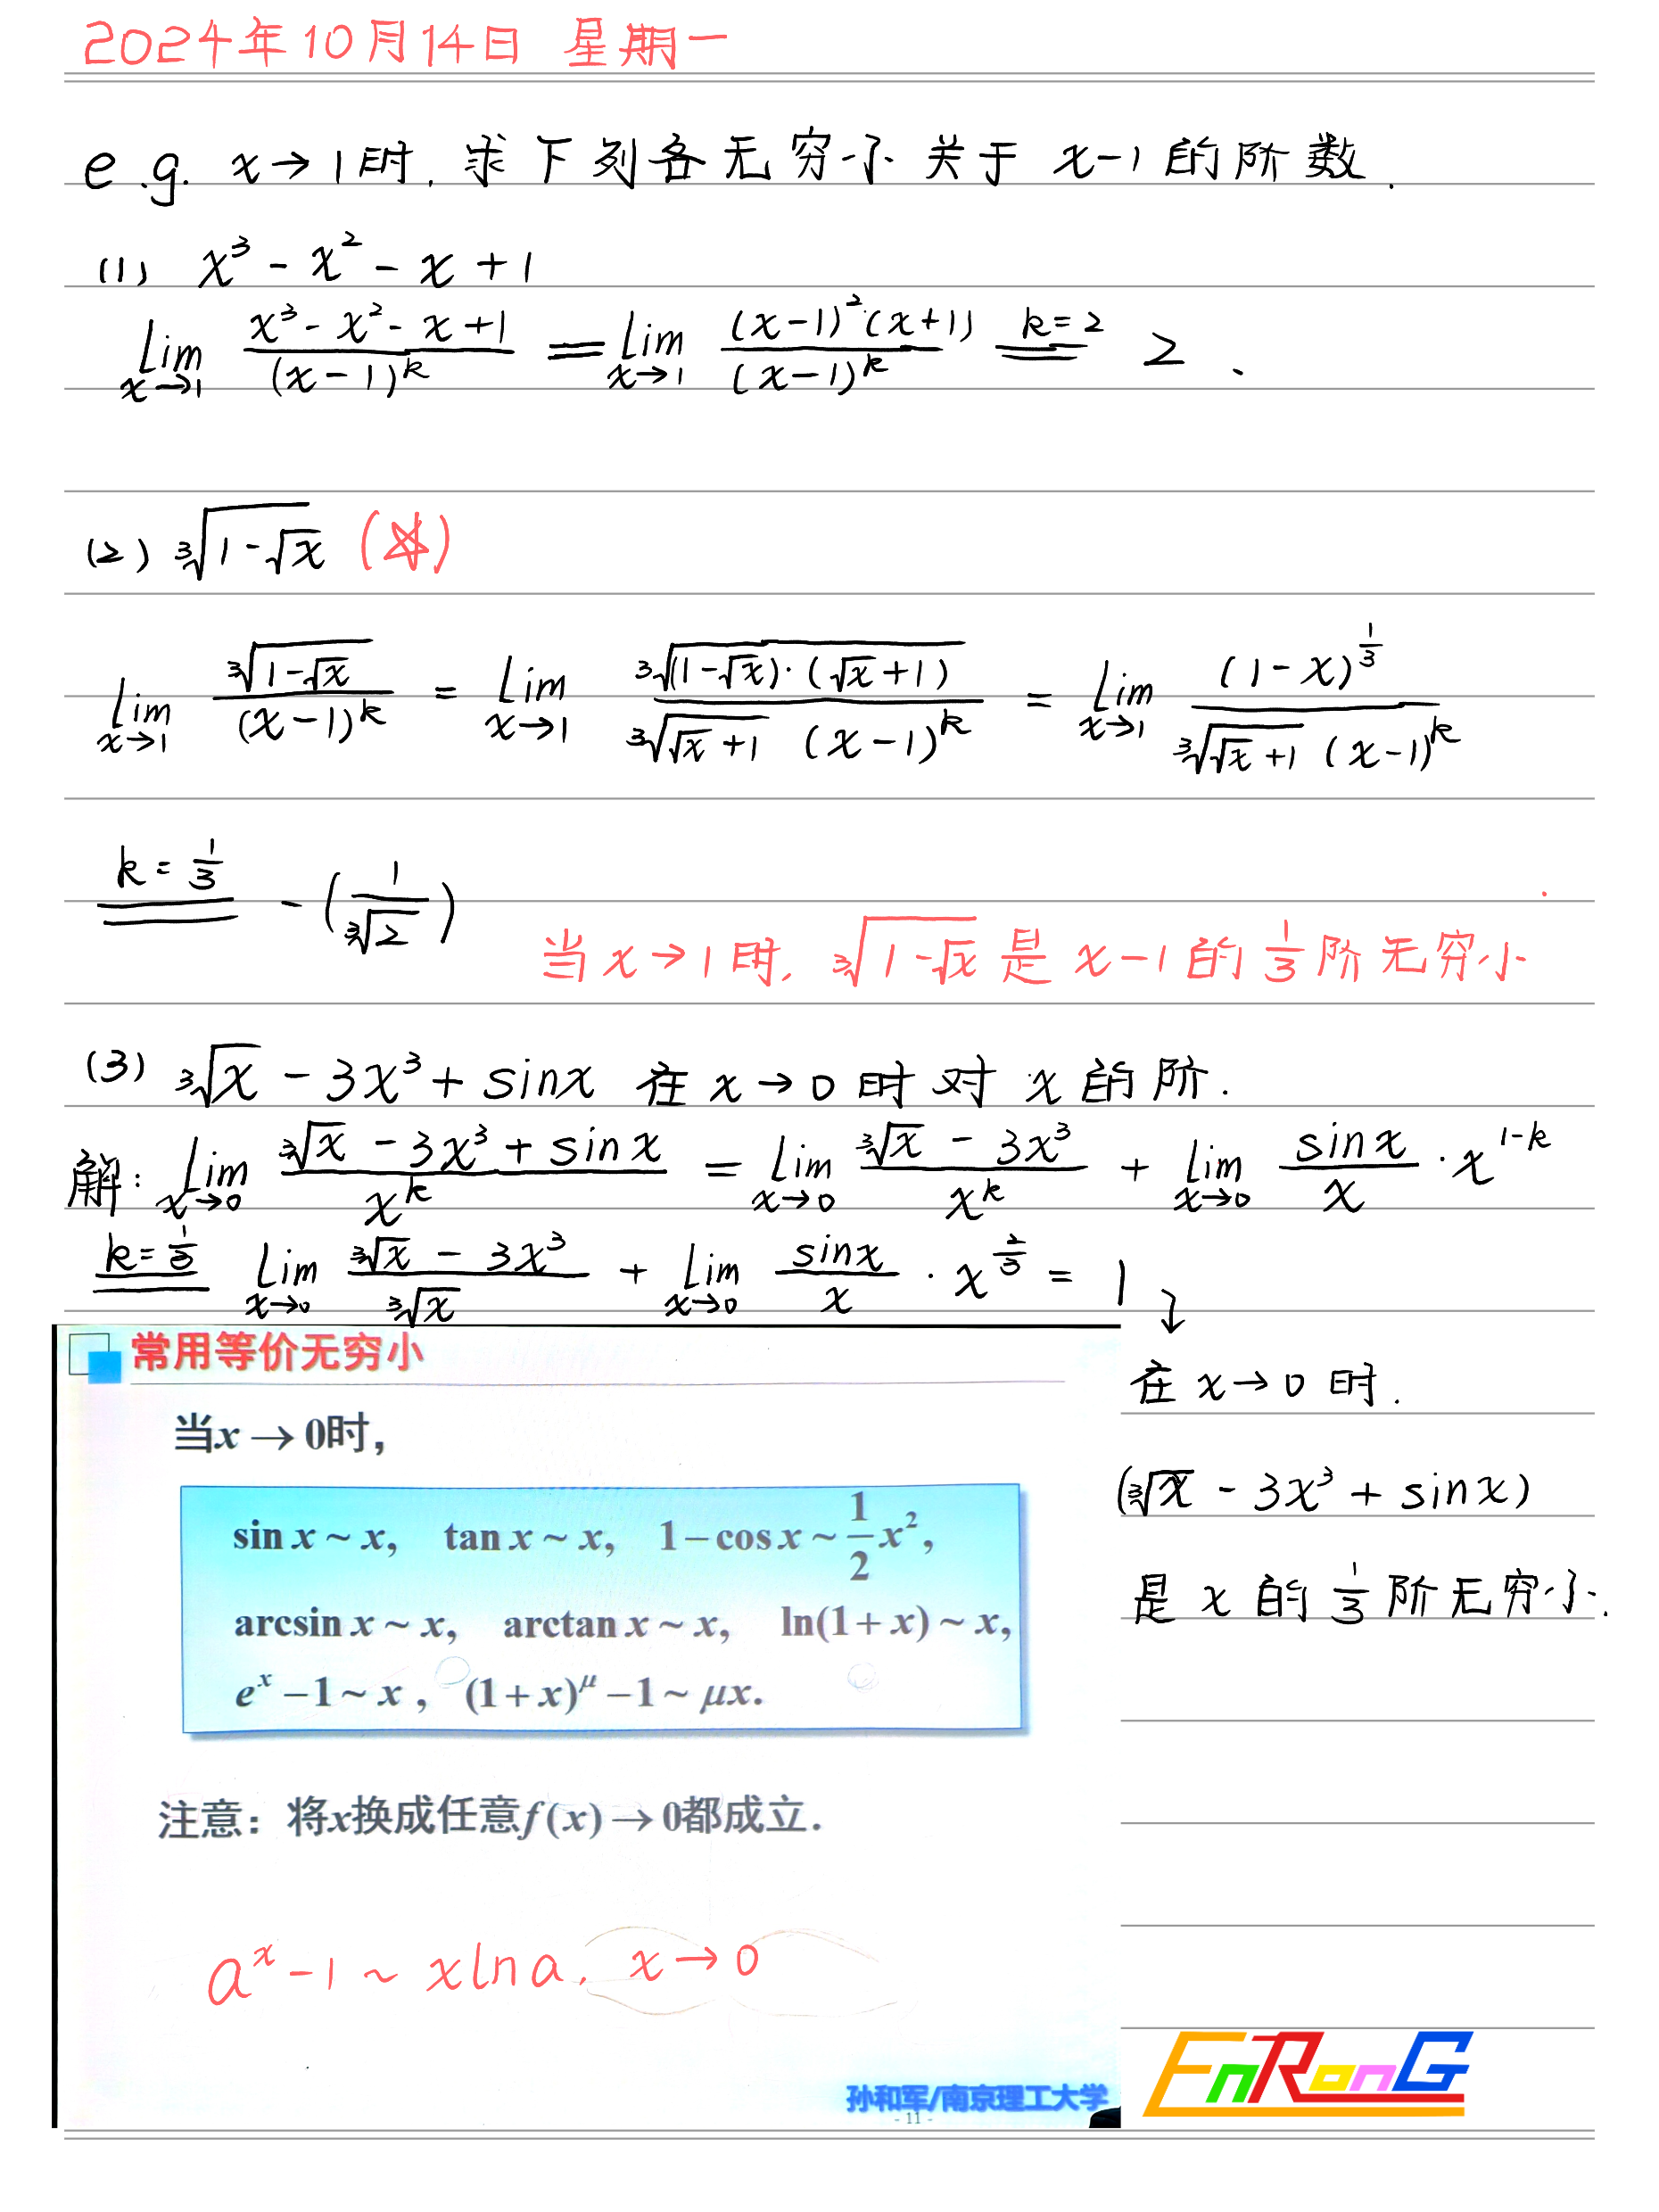 2024年10月14日 星期一
e.g. x→1时, 求下列各无穷小关于 x-1 的阶数.
(1) x³ - x² - x + 1
lim_{x→1} (x³ - x² - x + 1)/(x-1)^k = lim_{x→1} (x-1)²·(x+1)/(x-1)^k =(k=2)= 2、
(2) ∛(1-√x) (☆)
lim_{x→1} ∛(1-√x)/(x-1)^k = lim_{x→1} ∛((1-√x)·(√x+1))/(∛(√x+1) (x-1)^k) = lim_{x→1} (1-x)^{1/3}/(∛(√x+1) (x-1)^k)
=(k=1/3)= -(1/∛2)
当 x→1时, ∛(1-√x) 是 x-1 的 1/3 阶无穷小
(3) ∛x - 3x³ + sinx 在 x→0 时 对 x 的 阶.
解: lim_{x→0} (∛x - 3x³ + sinx)/x^k = lim_{x→0} (∛x - 3x³)/x^k + lim_{x→0} sinx/x · x^{1-k}
=(k=1/3)= lim_{x→0} (∛x - 3x³)/∛x + lim_{x→0} sinx/x · x^{2/3} = 1 ↓
在 x→0 时.
(∛x - 3x³ + sinx)
是 x 的 1/3 阶无穷小.
常用等价无穷小
当x → 0时,
sin x ~ x, tan x ~ x, 1 - cos x ~ 1/2 x²,
arcsin x ~ x, arctan x ~ x, ln(1 + x) ~ x,
e^x - 1 ~ x , (1 + x)^μ - 1 ~ μx.
注意：将x换成任意f(x) → 0都成立.
a^x - 1 ~ xlna. x→0
孙和军/南京理工大学
- 11 -
EnRonG